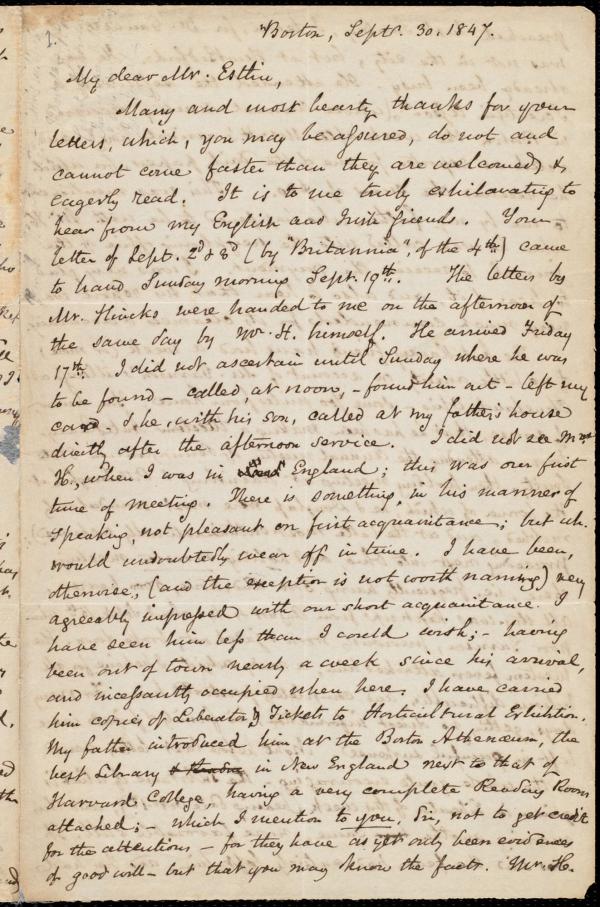 1.
Boston, Sept. 30. 1847.
My dear Mr. Estlin,
Many and most hearty thanks for your
letters, which, you may be assured, do not and
cannot come faster than they are welcomed, &
eagerly read. It is to me truly exhilarating to
hear from my English and Irish friends. Your
letter of Sept. 2d & 3d (by "Britannia", of the 4th) came
to hand Sunday morning Sept. 19th. The letters by
Mr. Hincks were handed to me on the afternoon of
the same day by Mr. H. himself. He arrived Friday
17th. I did not ascertain until Sunday where he was
to be found – called, at noon, – found him out – left my
card. & he, with his son, called at my father's house
directly after the afternoon service. I did not see Mr.
H., when I was in England; this was our first
time of meeting. There is something, in his manner of
speaking, not pleasant on first acquaintance; but wh.
would undoubtedly wear off in time. I have been,
otherwise, (and the exception is not worth naming) very
agreeably impressed with our short acquaintance. I
have seen him less than I could wish; – having
been out of town nearly a week since his arrival,
and incessantly occupied when here. I have carried
him copies of Liberator, & Tickets to Horticultural Exhibition.
My father introduced him at the Boston Athenæum, the
best Library in New England next to that of
Harvard College, having a very complete Reading Room
attached; – which I mention to you, Sir, not to get credit
for the attentions – for they have as yet only been evidences
of good will – but that you may know the facts. Mr. H.